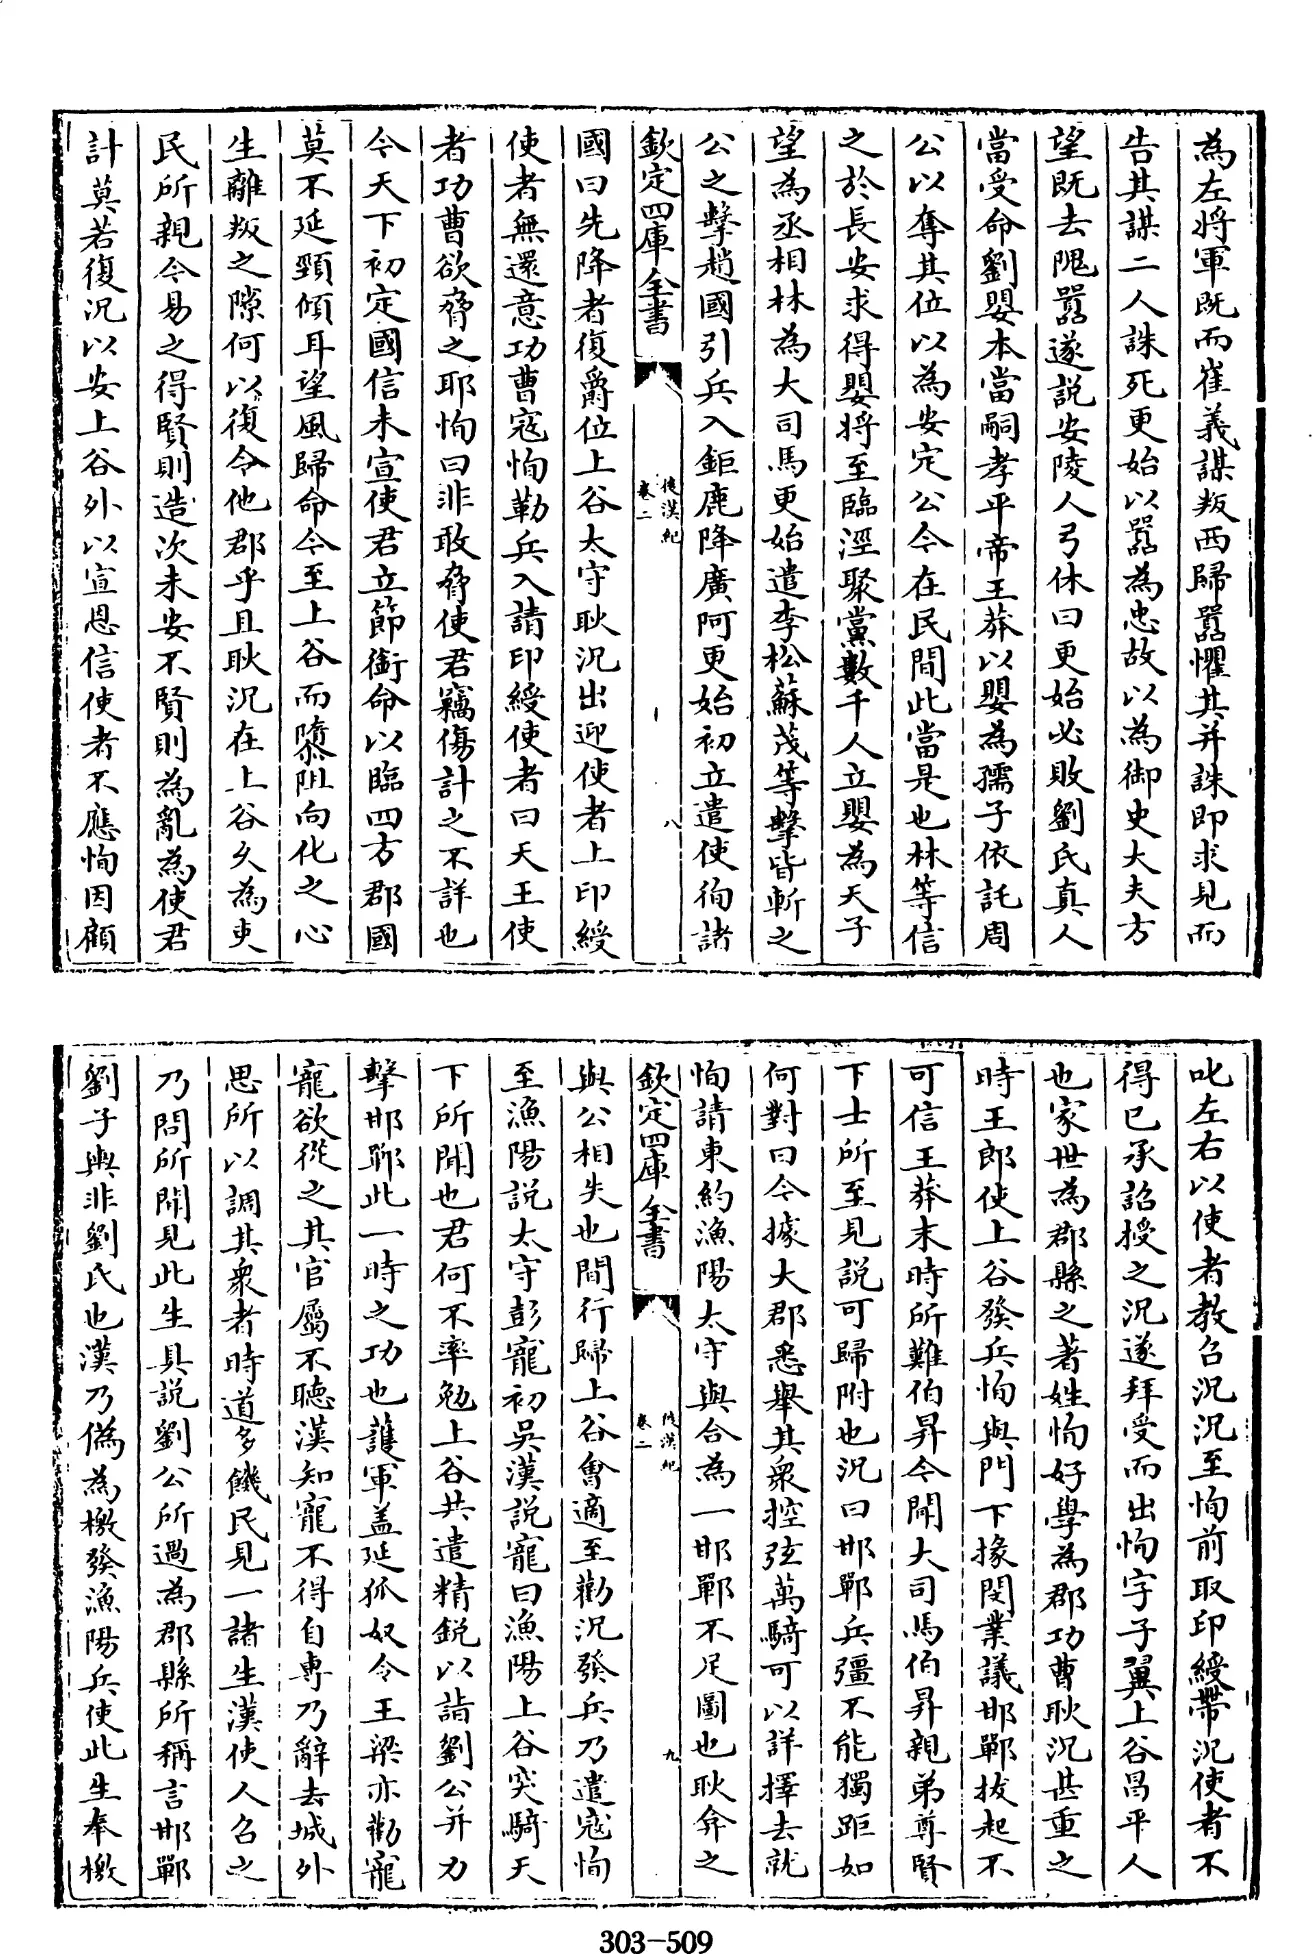 為左將軍既而崔義謀叛西歸囂懼其并誅即求見而
告其謀二人誅死更始以囂為忠故以為御史大夫方
望既去隗囂遂説安陵人弓休曰更始必敗劉氏真人
當受命劉嬰本當嗣孝平帝王莽以嬰為孺子依託周
公以奪其位以為安定公今在民間此當是也林等信
之於長安求得嬰將至臨涇聚黨數千人立嬰為天子
望為丞相林為大司馬更始遣李松蘇茂等擊皆斬之
公之擊趙國引兵入鉅鹿降廣阿更始初立遣使徇諸
欽定四庫全書
後漢紀
卷二
八
國曰先降者復爵位上谷太守耿況出迎使者上印綬
使者無還意功曹寇恂勒兵入請印綬使者曰天王使
者功曹欲脅之耶恂曰非敢脅使君竊傷計之不詳也
今天下初定國信未宣使君立節銜命以臨四方郡國
莫不延頸傾耳望風歸命今至上谷而隳阻向化之心
生離叛之隙何以復令他郡乎且耿況在上谷久為吏
民所親今易之得賢則造次未安不賢則為亂為使君
計莫若復況以安上谷外以宣恩信使者不應恂因顧
叱左右以使者教召況況至恂前取印綬帶況使者不
得已承詔授之況遂拜受而出恂字子翼上谷昌平人
也家世為郡縣之著姓恂好學為郡功曹耿況甚重之
時王郎使上谷發兵恂與門下掾閔業議邯鄲拔起不
可信王莽末時所難伯昇今聞大司馬伯昇親弟尊賢
下士所至見説可歸附也況曰邯鄲兵彊不能獨距如
何對曰今據大郡悉舉其衆控弦萬騎可以詳擇去就
恂請東約漁陽太守與合為一邯鄲不足圖也耿弇之
欽定四庫全書
後漢紀
卷二
九
與公相失也間行歸上谷會適至勸況發兵乃遣寇恂
至漁陽説太守彭寵初吳漢説寵曰漁陽上谷突騎天
下所聞也君何不率勉上谷共遣精鋭以詣劉公并力
擊邯鄲此一時之功也護軍蓋延狐奴令王梁亦勸寵
寵欲從之其官屬不聽漢知寵不得自專乃辭去城外
思所以調其衆者時道多饑民見一諸生漢使人召之
乃問所聞見此生具説劉公所過為郡縣所稱言邯鄲
劉子輿非劉氏也漢乃偽為檄發漁陽兵使此生奉檄
303-509